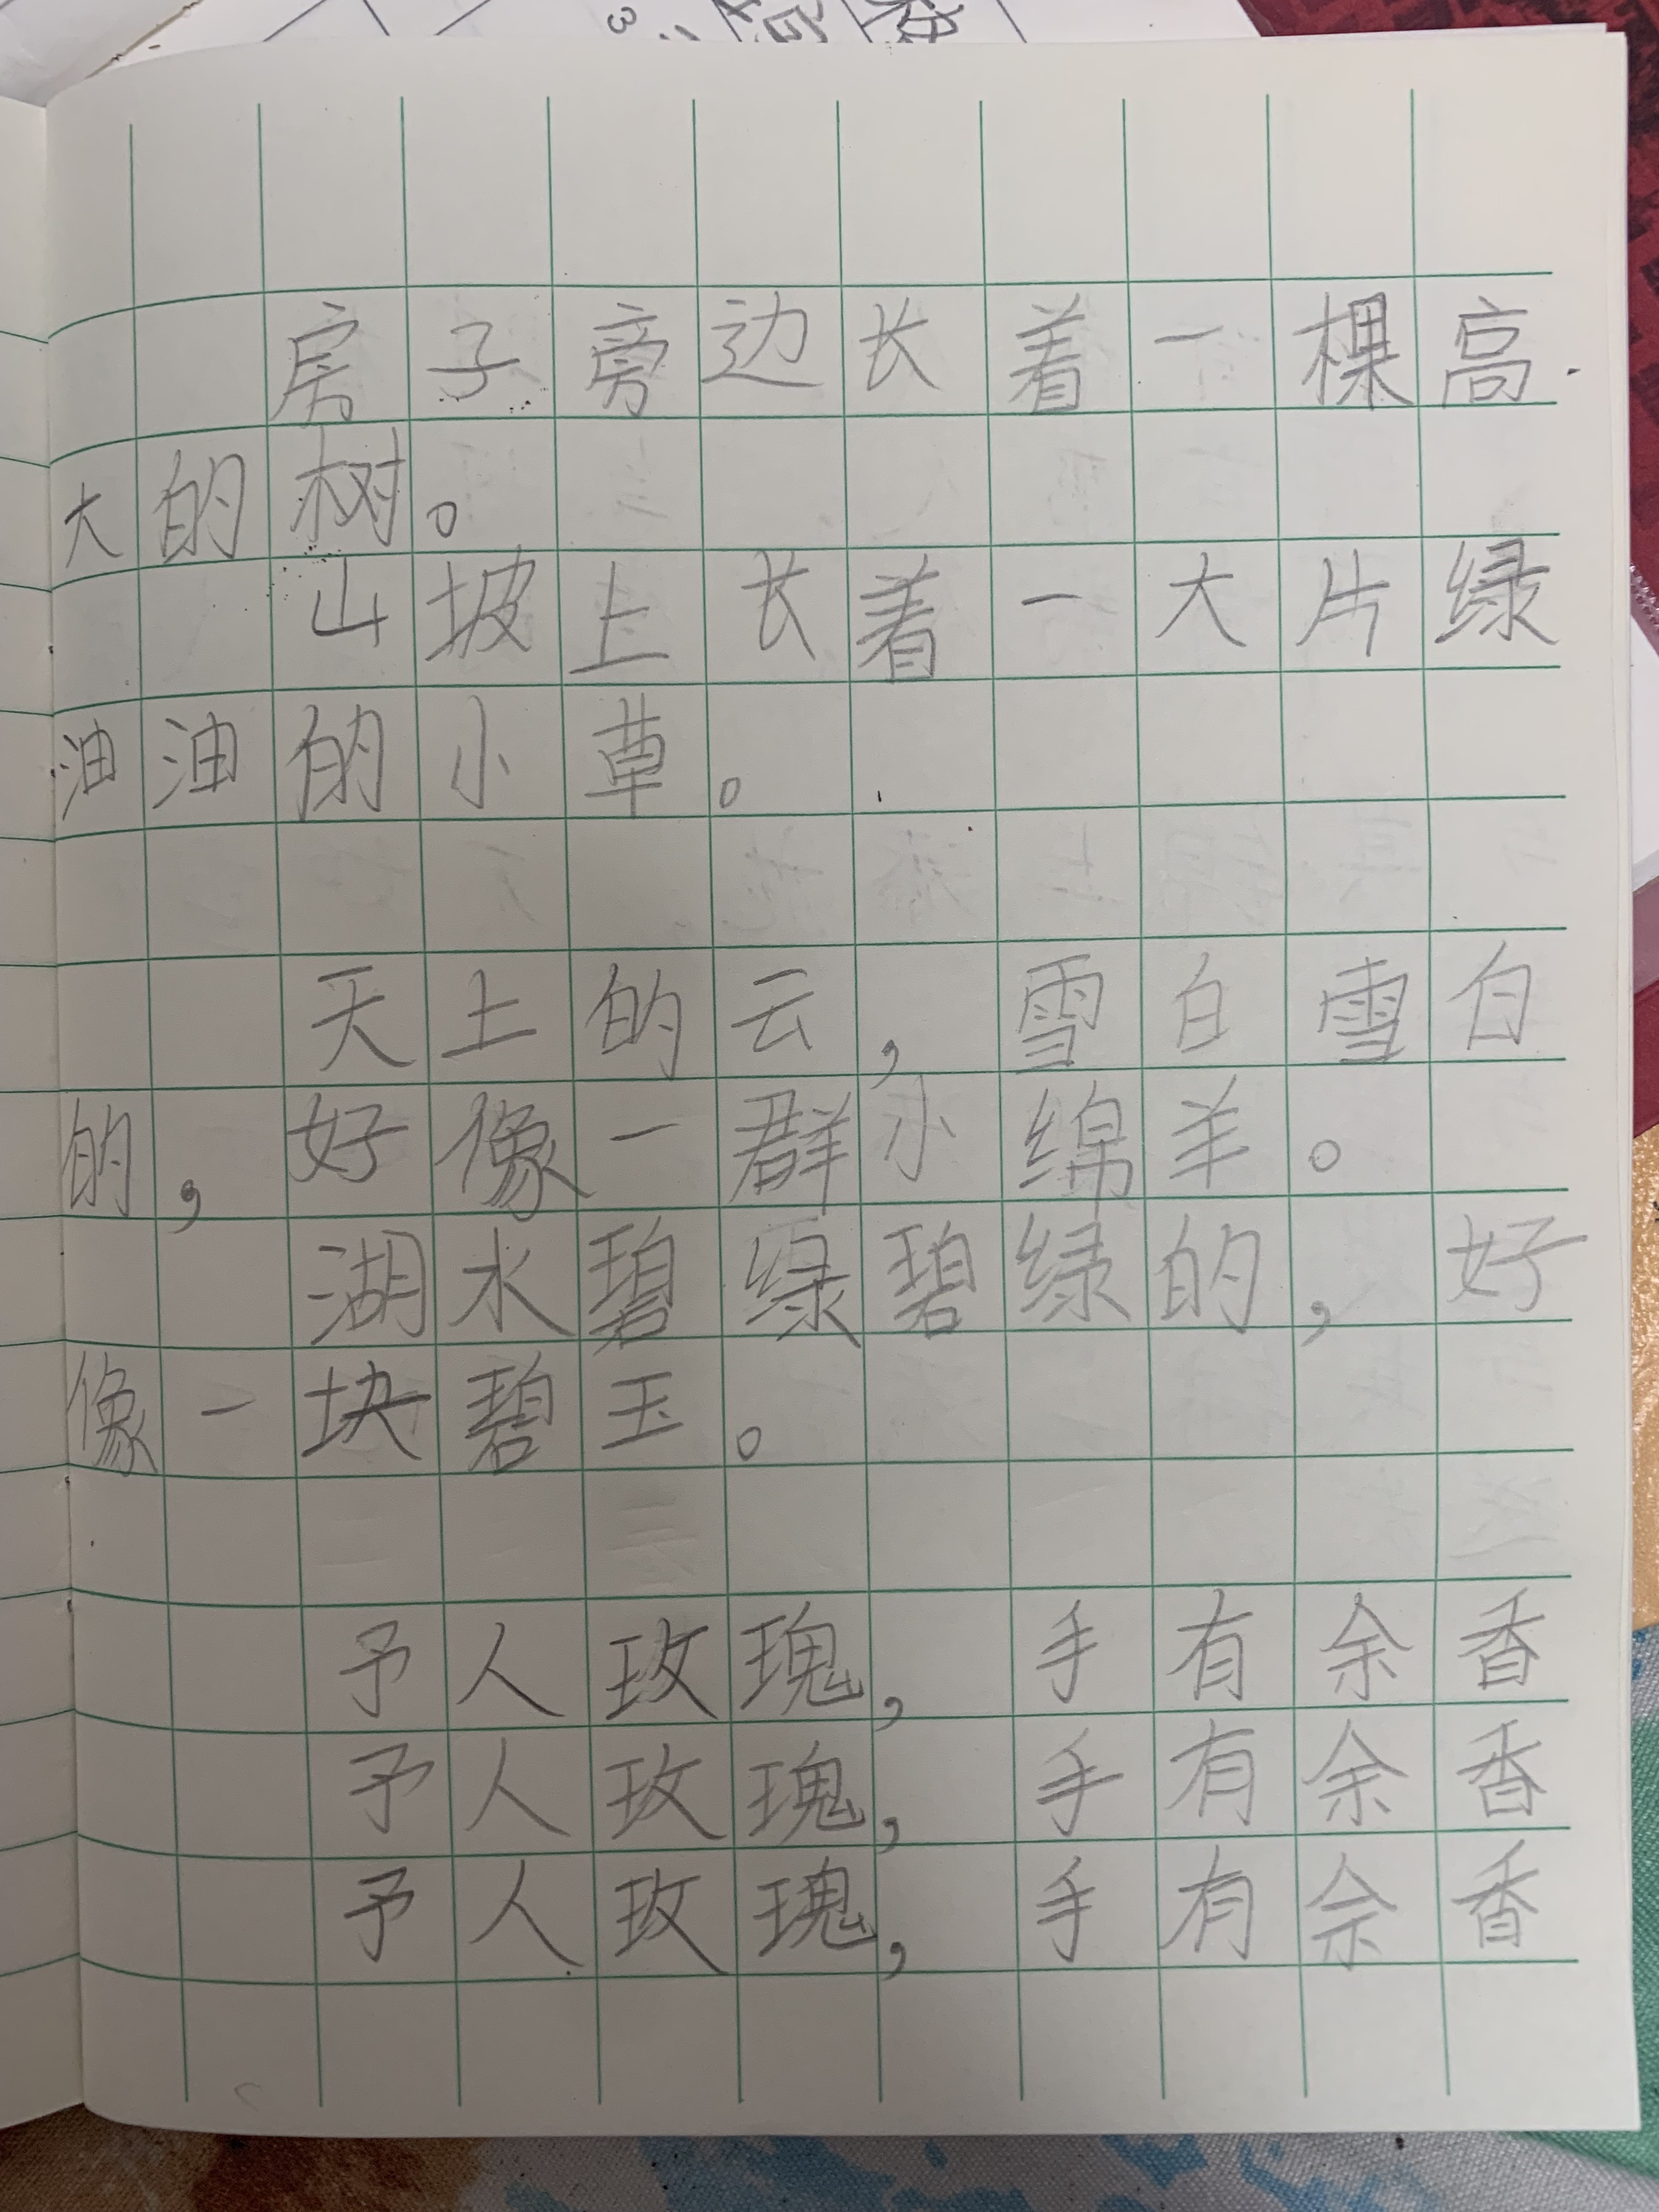 房子旁边长着一棵高
大的树。
山坡上长着一大片绿
油油的小草。
天上的云，雪白雪白
的，好像一群小绵羊。
湖水碧绿碧绿的，好
像一块碧玉。
予人玫瑰，手有余香
予人玫瑰，手有余香
予人玫瑰，手有余香